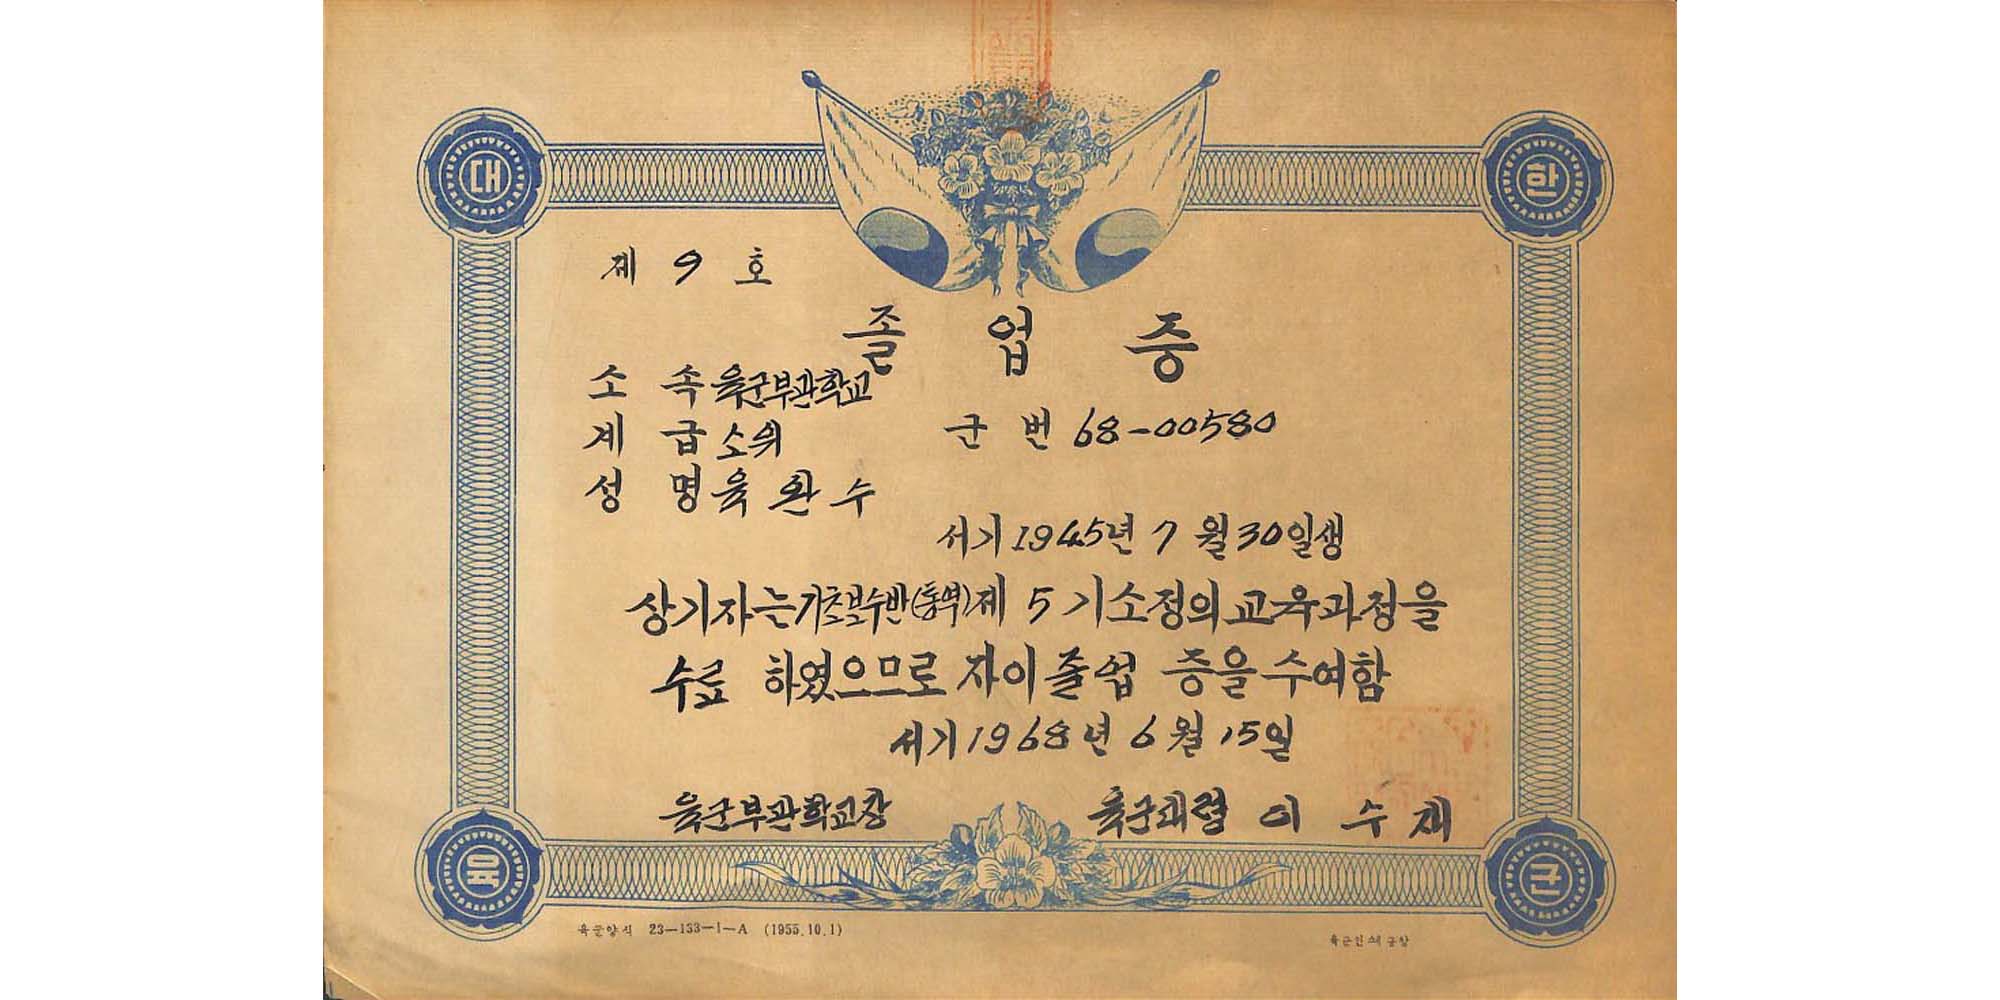 대
한
제 9 호
졸 업 증
소 속 육군부관학교
계 급 소위 군 번 68-00580
성 명 육 완 수
서기 1945년 7 월 30일생
상기자는 기초보수반(통역)제 5 기소정의교육과정을
수료 하였으므로 자이 졸업 증을수여함
서기1968년 6 월 15일
육군부관학교장 육군대령 이 수 재
육
군
육군양식 23-133-1-A (1955.10.1)
육군인쇄공창